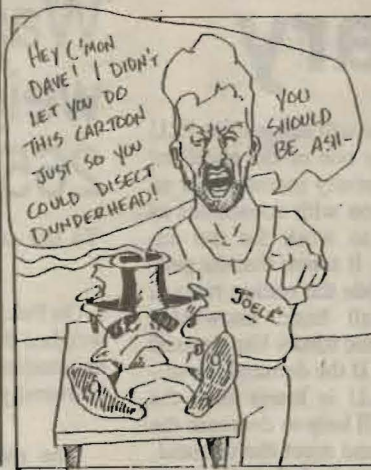 HEY C'MON
DAVE! I DIDN'T
LET YOU DO
THIS CARTOON
JUST SO YOU
COULD DISECT
DUNDERHEAD!
YOU
SHOULD
BE ASH-
JOELE